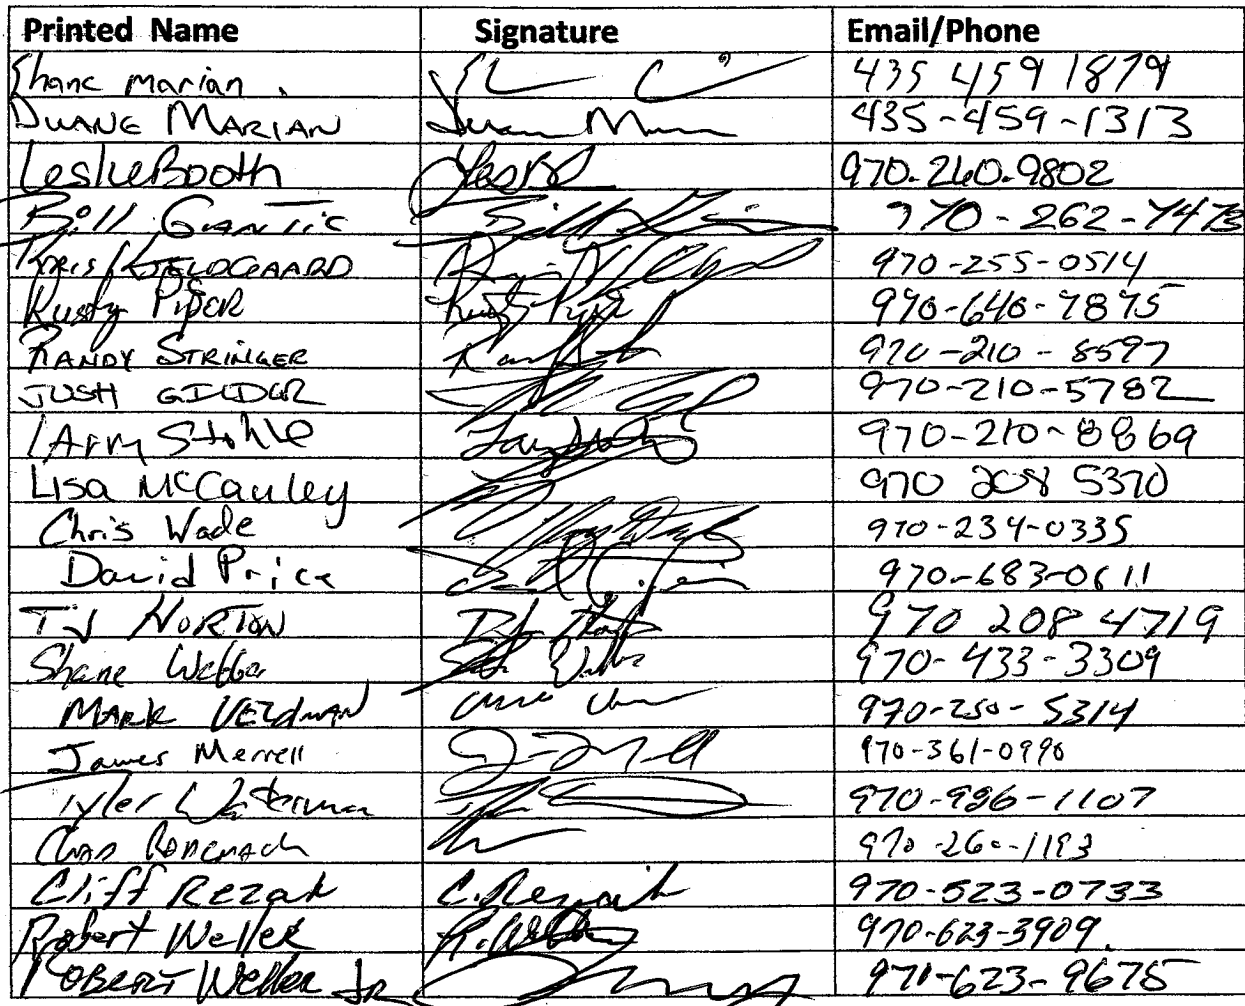 Printed Name Signature Email/Phone
Shane Marian. 435 459 1879
DUANE MARIAN 435-459-1313
Leslie Booth 970-260-9802
Bill GIANTIC 970-262-7473
KRIS KJELDGAARD 970-255-0514
Rusty PIPER Rusty Piper 970-640-7875
RANDY STRINGER 970-210-8597
JOSH GILDER 970-210-5782
LArry Stohle 970-210-8869
LISA McCauley 970 208 5370
Chris Wade 970-234-0335
David Price 970-683-0611
TJ NORTON 970 208 4719
Shane Weller 970-433-3309
MARK VELDMAN 970-250-5314
James Merrell 970-361-0990
Tyler Waterman 970-986-1107
CHAD 970-260-1193
Cliff Rezak C. Rezak 970-523-0733
Robert Weller R. Weller 970-623-3909
ROBERT Weller JR 970-623-9675